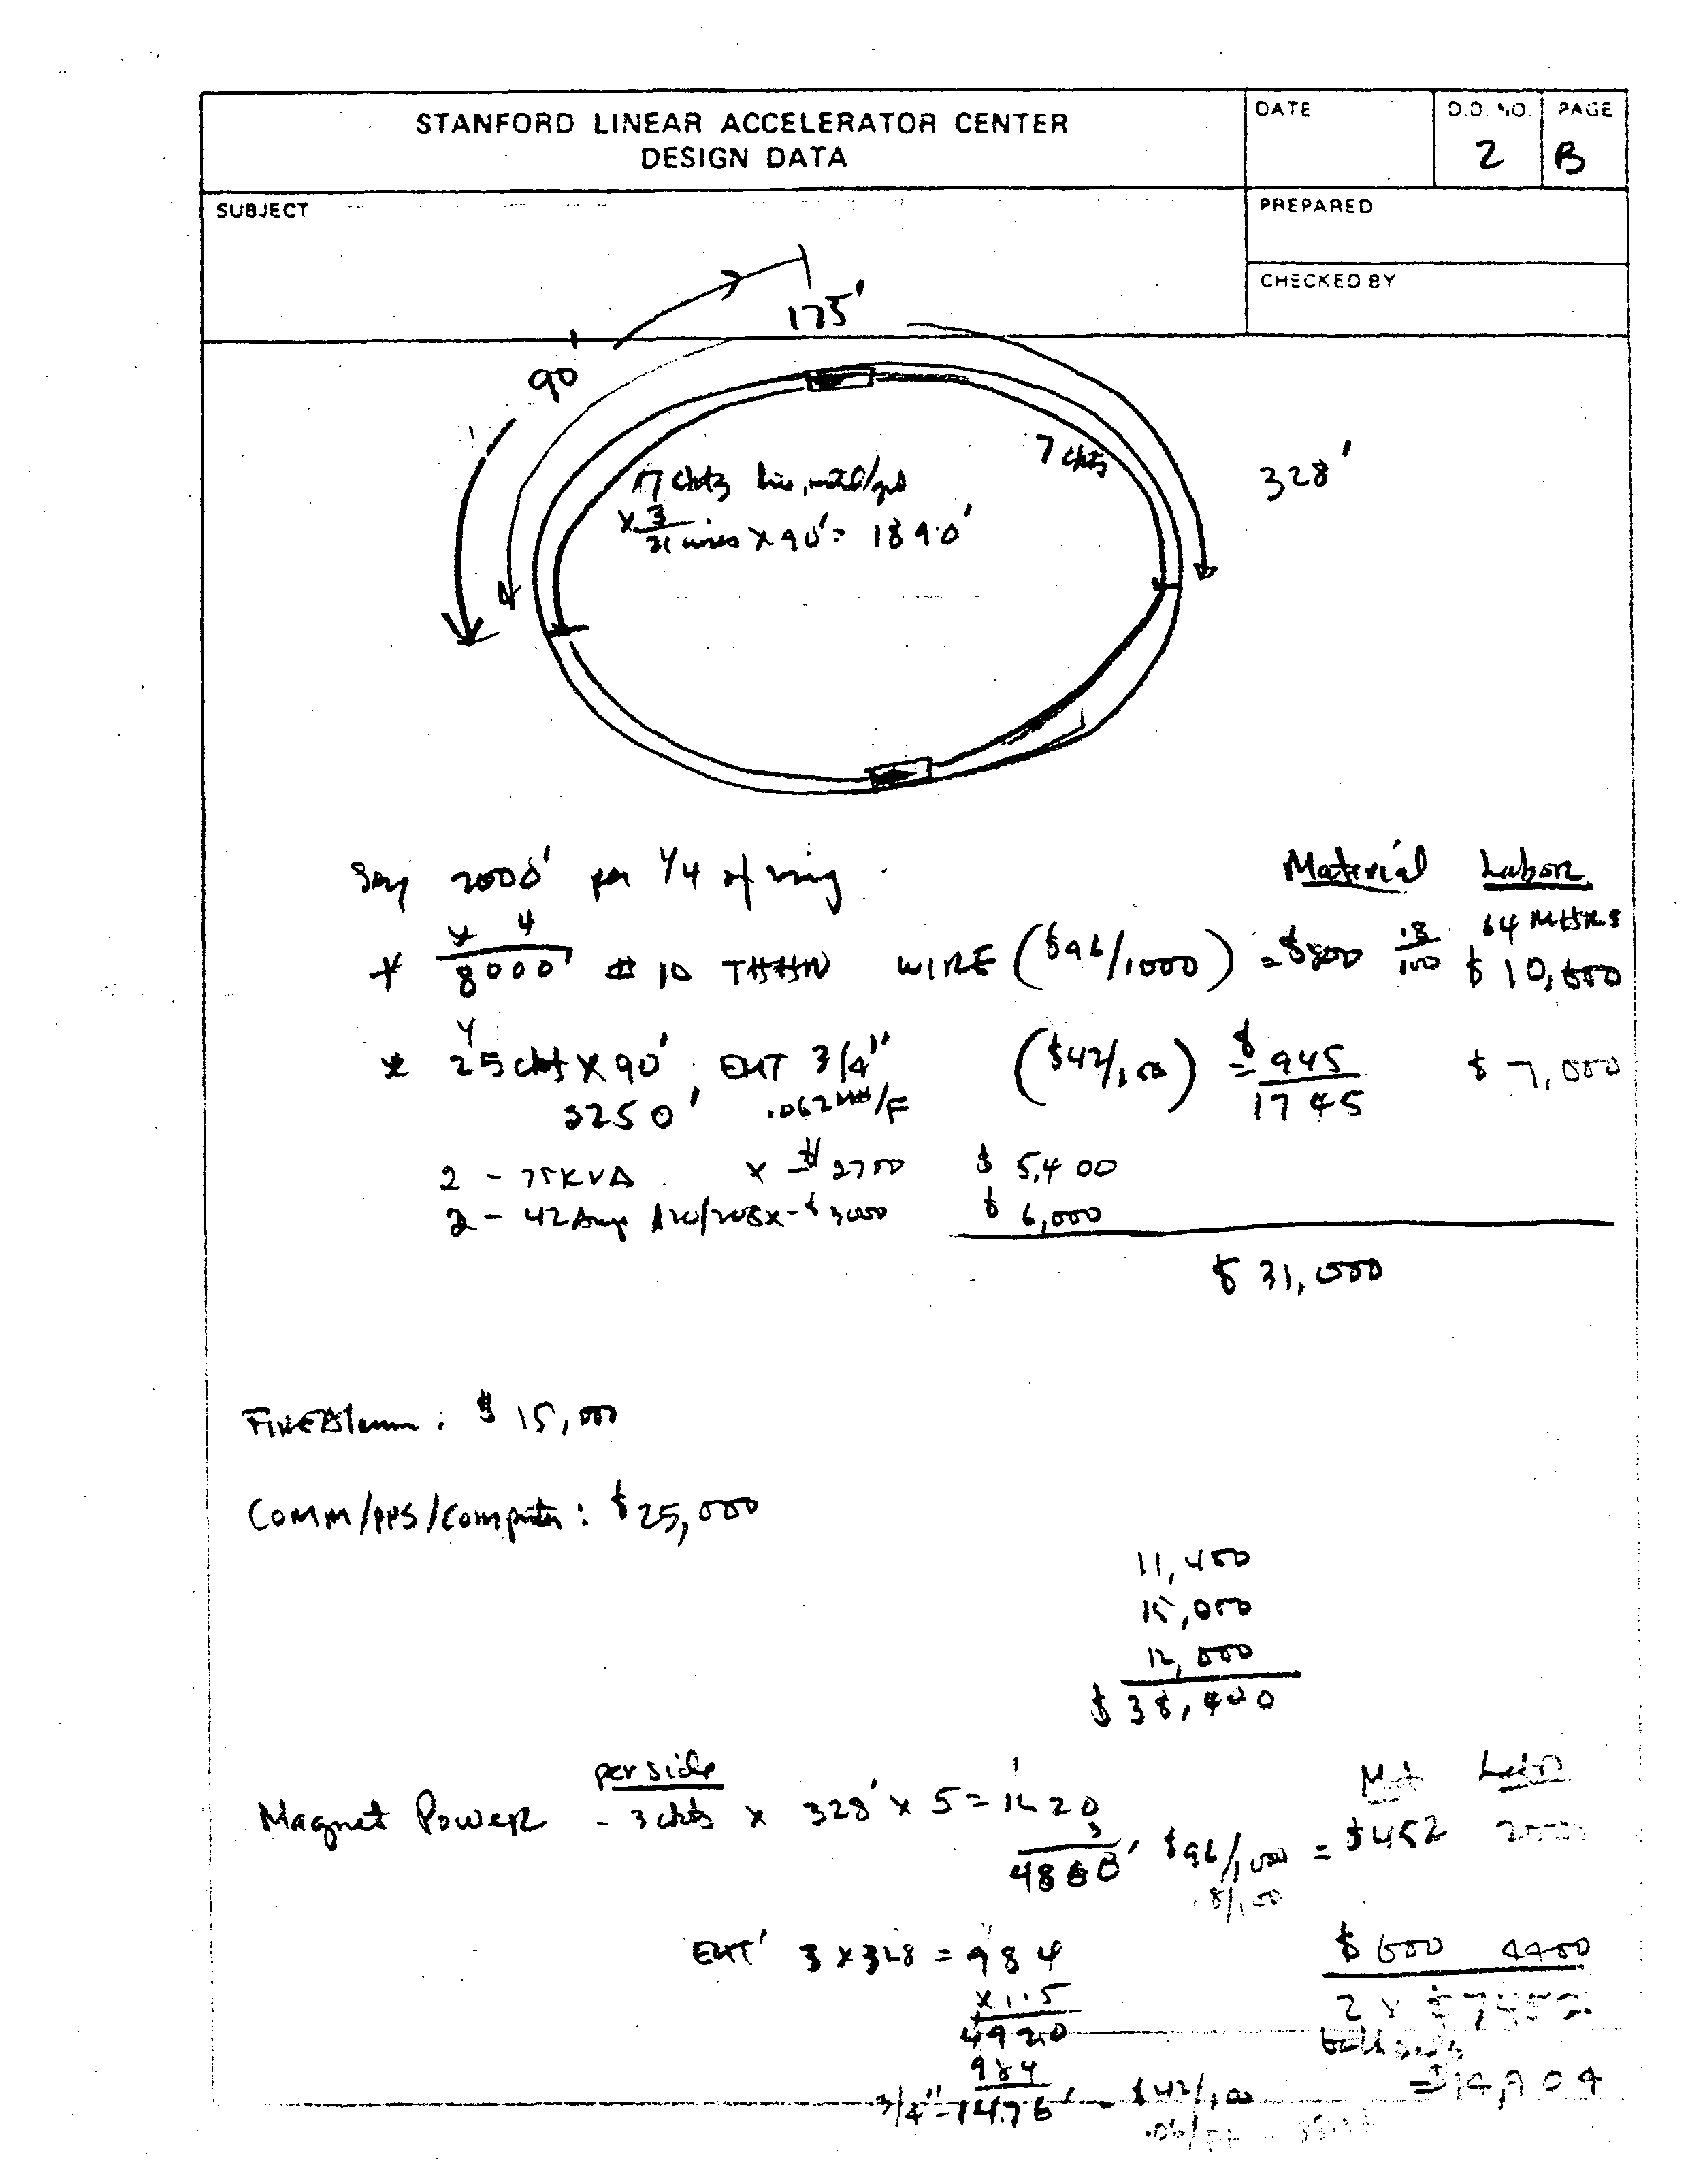 STANFORD LINEAR ACCELERATOR CENTER
DESIGN DATA
DATE
D.D. NO.
2
PAGE
B
SUBJECT
PREPARED
CHECKED BY
175'
90'
7 ckts
328'
7 ckts line,
x 3
21 wires x 90' = 1890'
Say 2000' per 1/4 of ring
Material Labor
x 4
* 8000' # 10 THHN WIRE ($96/1000) = $800 .8/100 64 MHRS $ 10,600
* 25 ckts x 90', EMT 3/4" ($42/100) = $ 945 $ 7,000
1745
.062 MH/F
2 - 75KVA x $2700 $ 5,400
2 - 42 Amp 120/208 x - $3000 $ 6,000
$ 31,000
FireAlarm: $ 15,000
Comm/PPS/Computer: $25,000
11,400
15,000
12,000
$ 38,400
Magnet Power per side - 3 ckts x 328' x 5 = 1620'
Mat Labor
3
$96/1000 = $452 2000
.8/100
EMT 3 x 328 = 984
$ 600 4400
x 1.5
2 x $7452
4920
both sides
984
= $14,904
3/4" = 1476' - $42/100